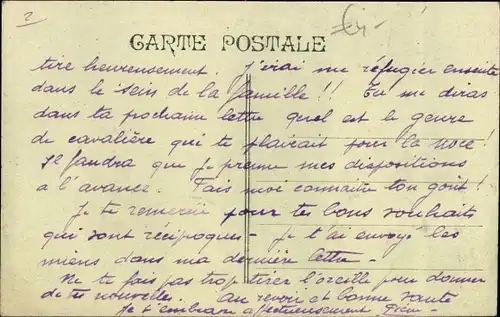 2
CARTE POSTALE
tire heureusement. J'irai me réfugier ensuite
dans le sein de la famille!! Tu me diras
dans ta prochain lettre quel est le genre
de cavalière qui te plairait pour la noce!
Il faudra que je prenne mes dispositions
a l'avance. Fais moi connaître ton goût!
Je te remercie pour tes bons souhaits
qui sont réciproques - Je t'ai envoyé les
miens dans ma dernière lettre -
Ne te fais pas trop tirer l'oreille pour donner
de tes nouvelles. Au revoir et bonne santé
Je t'embrasse affectueusement